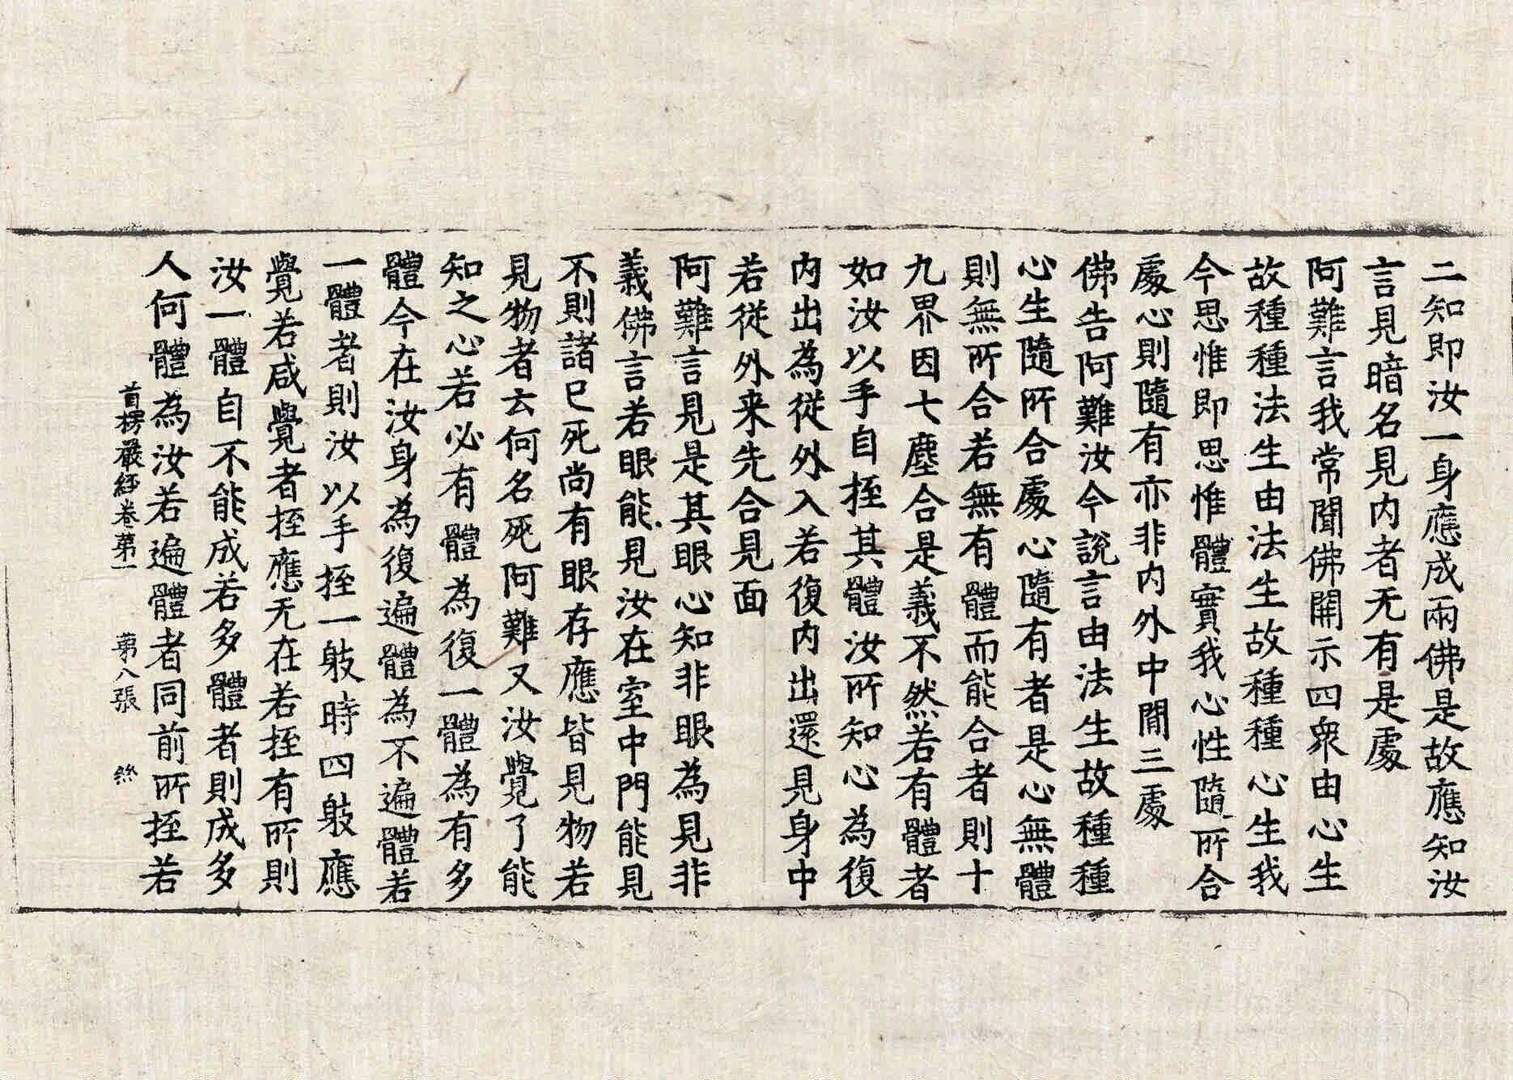 二知即汝一身應成兩佛是故應知汝
言見暗名見内者无有是處
阿難言我常聞佛開示四衆由心生
故種種法生由法生故種種心生我
今思惟即思惟體實我心性隨所合
處心則隨有亦非内外中閒三處
佛告阿難汝今說言由法生故種種
心生隨所合處心隨有者是心無體
則無所合若無有體而能合者則十
九界因七塵合是義不然若有體者
如汝以手自挃其體汝所知心為復
内出為從外入若復内出還見身中
若從外来先合見面
阿難言見是其眼心知非眼為見非
義佛言若眼能見汝在室中門能見
不則諸已死尚有眼存應皆見物若
見物者云何名死阿難又汝覺了能
知之心若必有體為復一體為有多
體今在汝身為復遍體為不遍體若
一體者則汝以手挃一肢時四肢應
覺若咸覺者挃應无在若挃有所則
汝一體自不能成若多體者則成多
人何體為汝若遍體者同前所挃若
首楞嚴經卷第一 第八張 絲